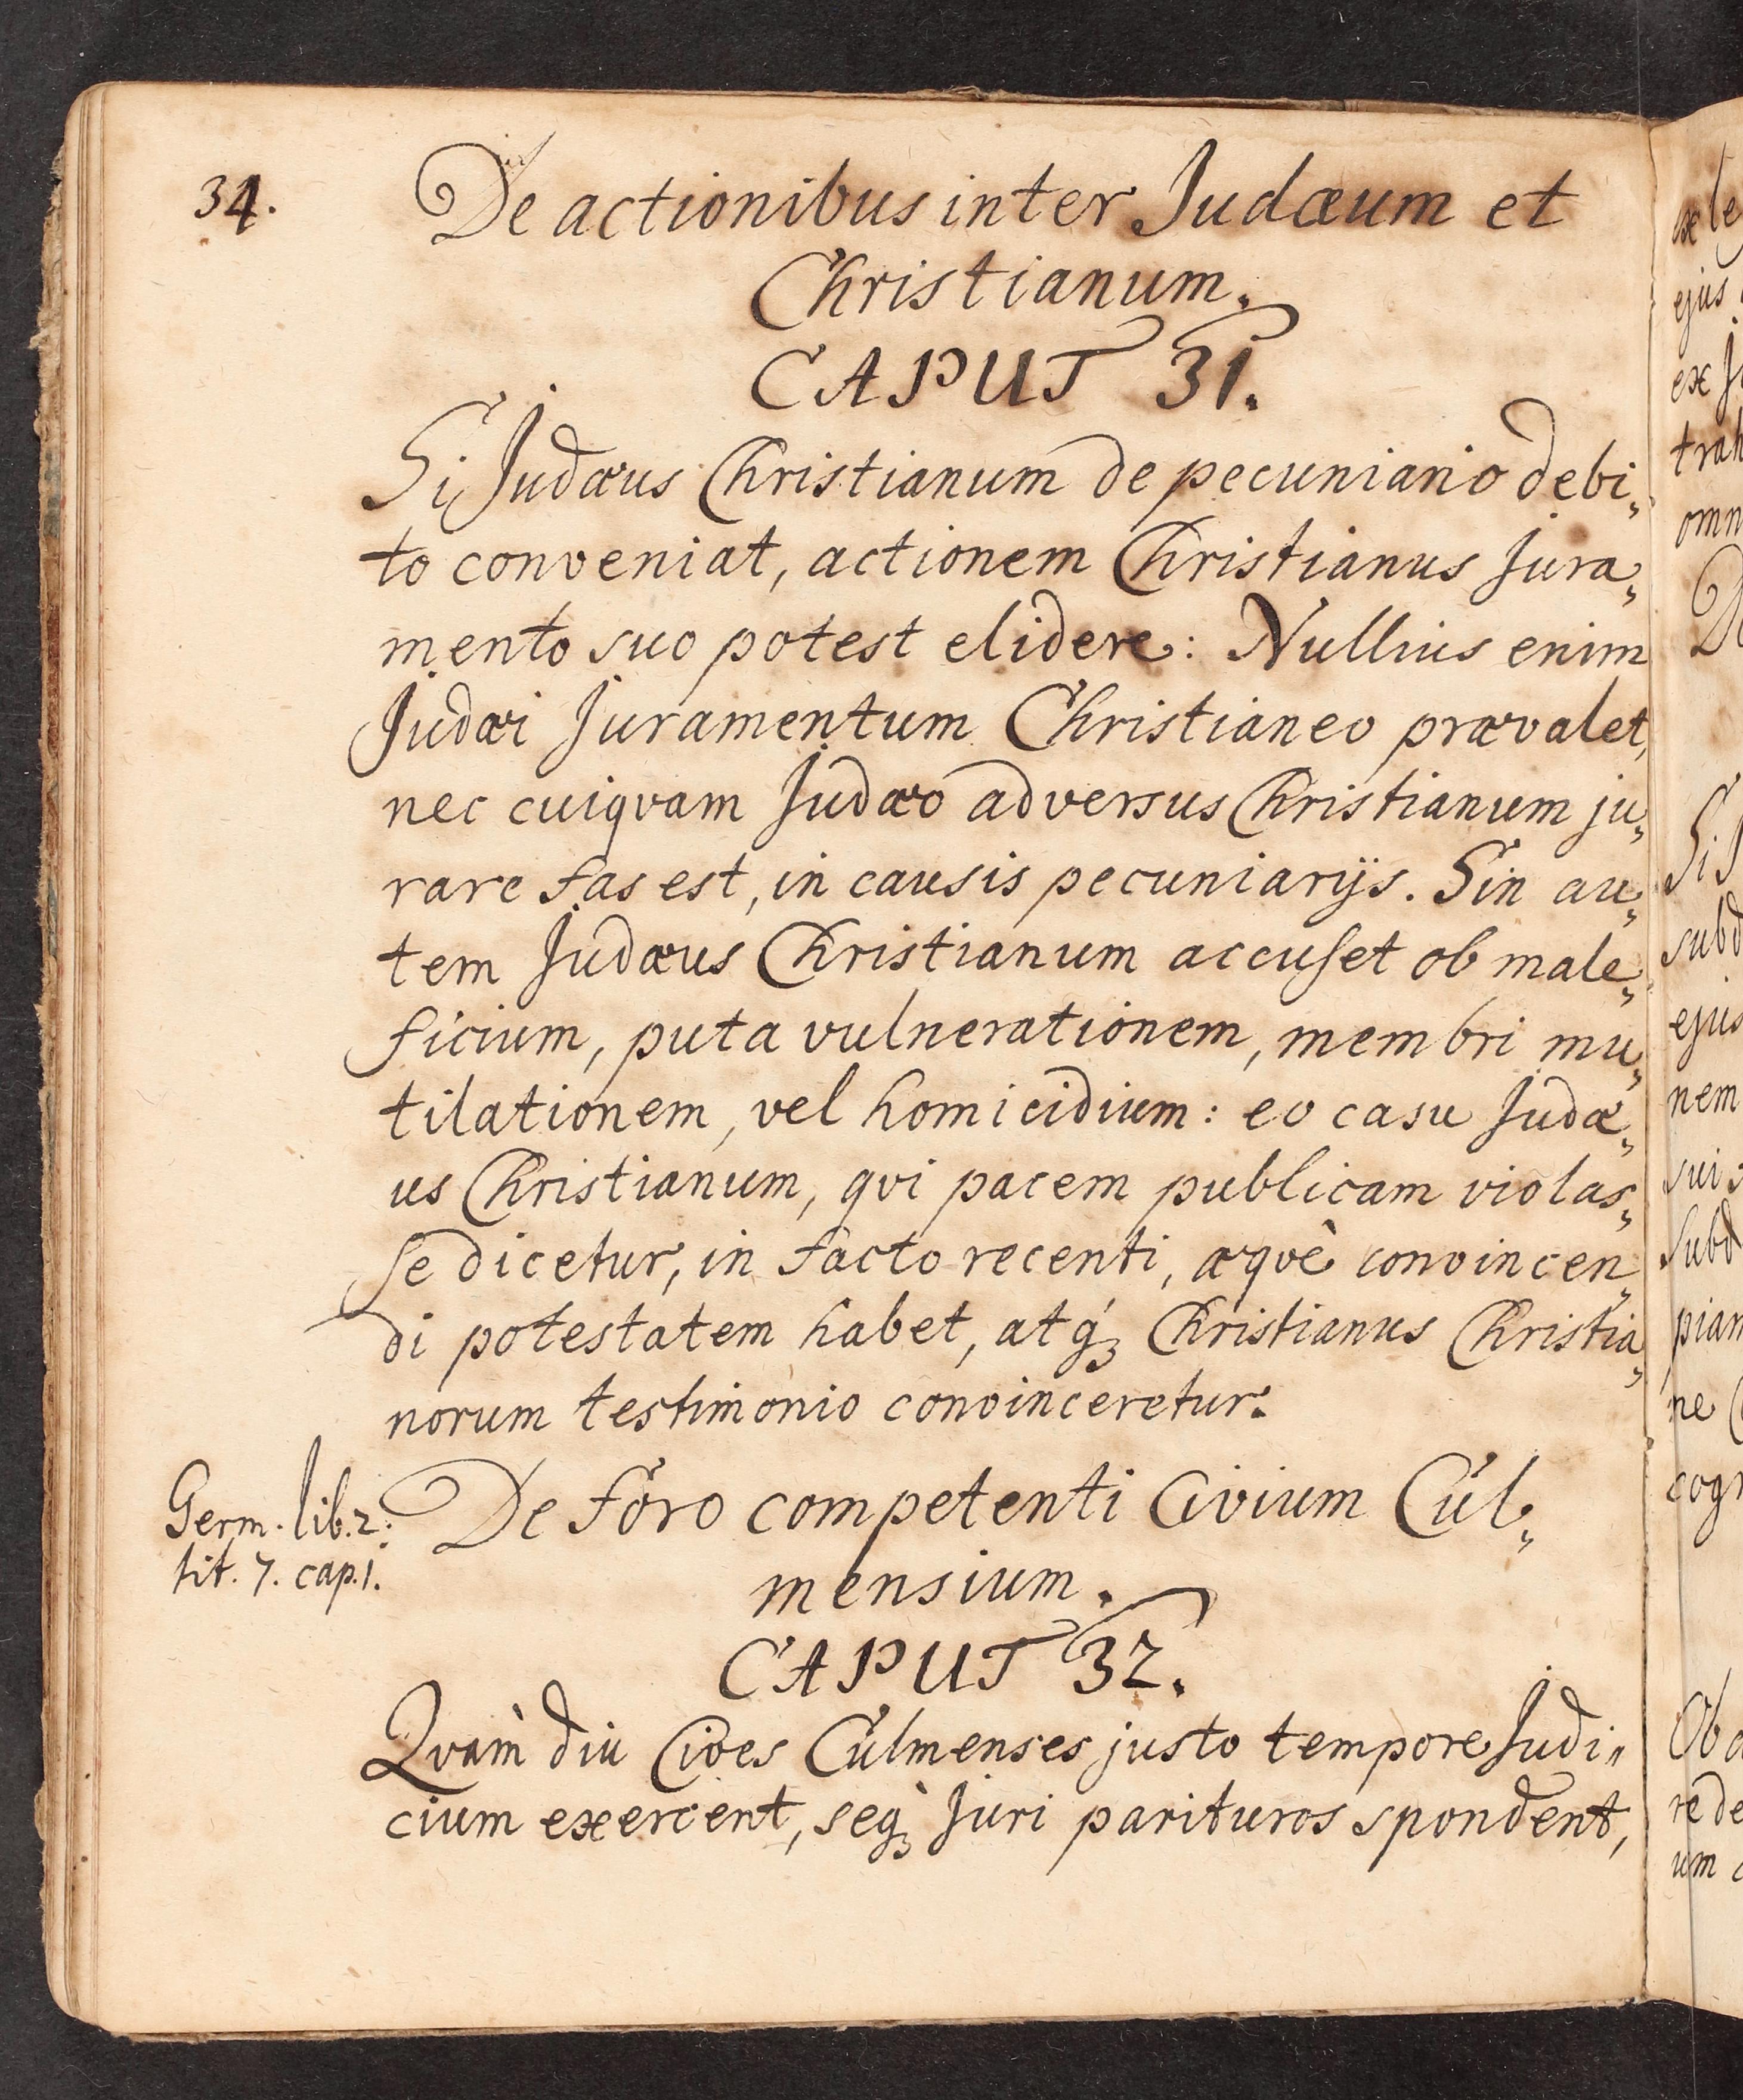 34.
De actionibus inter Judæum et
Christianum.
CAPUT 31.
Si Judæus Christianum de pecuniario debi„
to conveniat, actionem Christianus Jura„
mento suo potest elidere: Nullius enim
Judæi Juramentum Christianeo prævalet,
nec cuiqvam Judæo adversus Christianum ju„
rare fas est, in causis pecuniarijs. Sin au„
tem Judæus Christianum accuset ob male„
ficium, puta vulnerationem, membri mu„
tilationem, vel homicidium: eo casu Judæ„
us Christianum, qvi pacem publicam violas„
se dicetur, in facto recenti, æqvè convincen„
di potestatem habet, atq́ꝫ Christianus Christia„
norum testimonio convinceretur.
Germ. lib. 2.
tit. 7. cap. 1.
De foro competenti Civium Cul„
mensium.
CAPUT 32.
Qvam diu Cives Culmenses justo tempore Judi„
cium exercent, seqꝫ Juri parituros spondent,